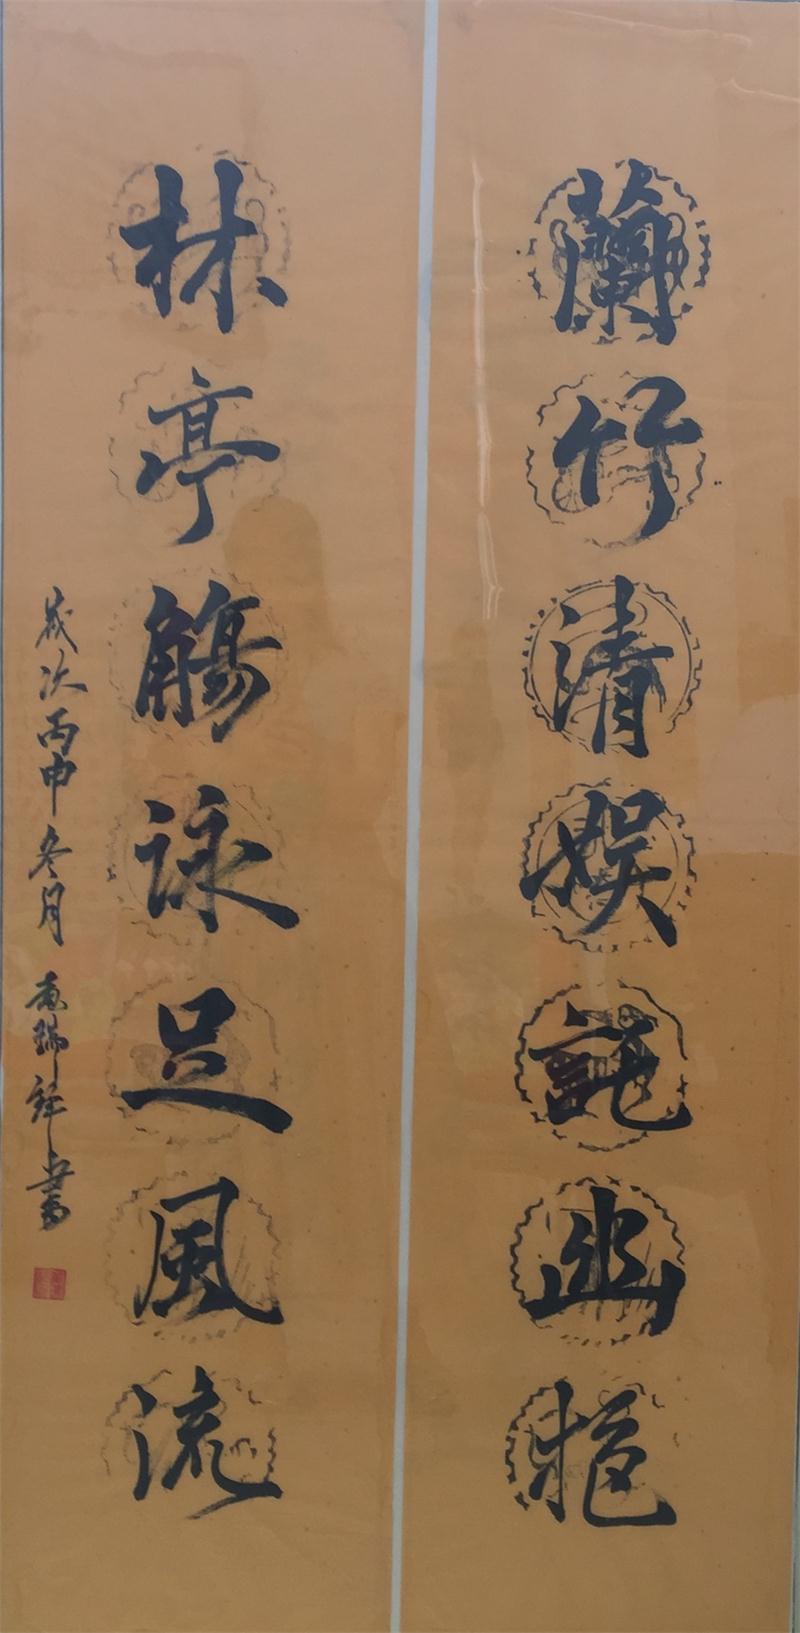 蘭竹清娛託幽
林亭觴詠足風流
歲次丙申冬月 瑞 書